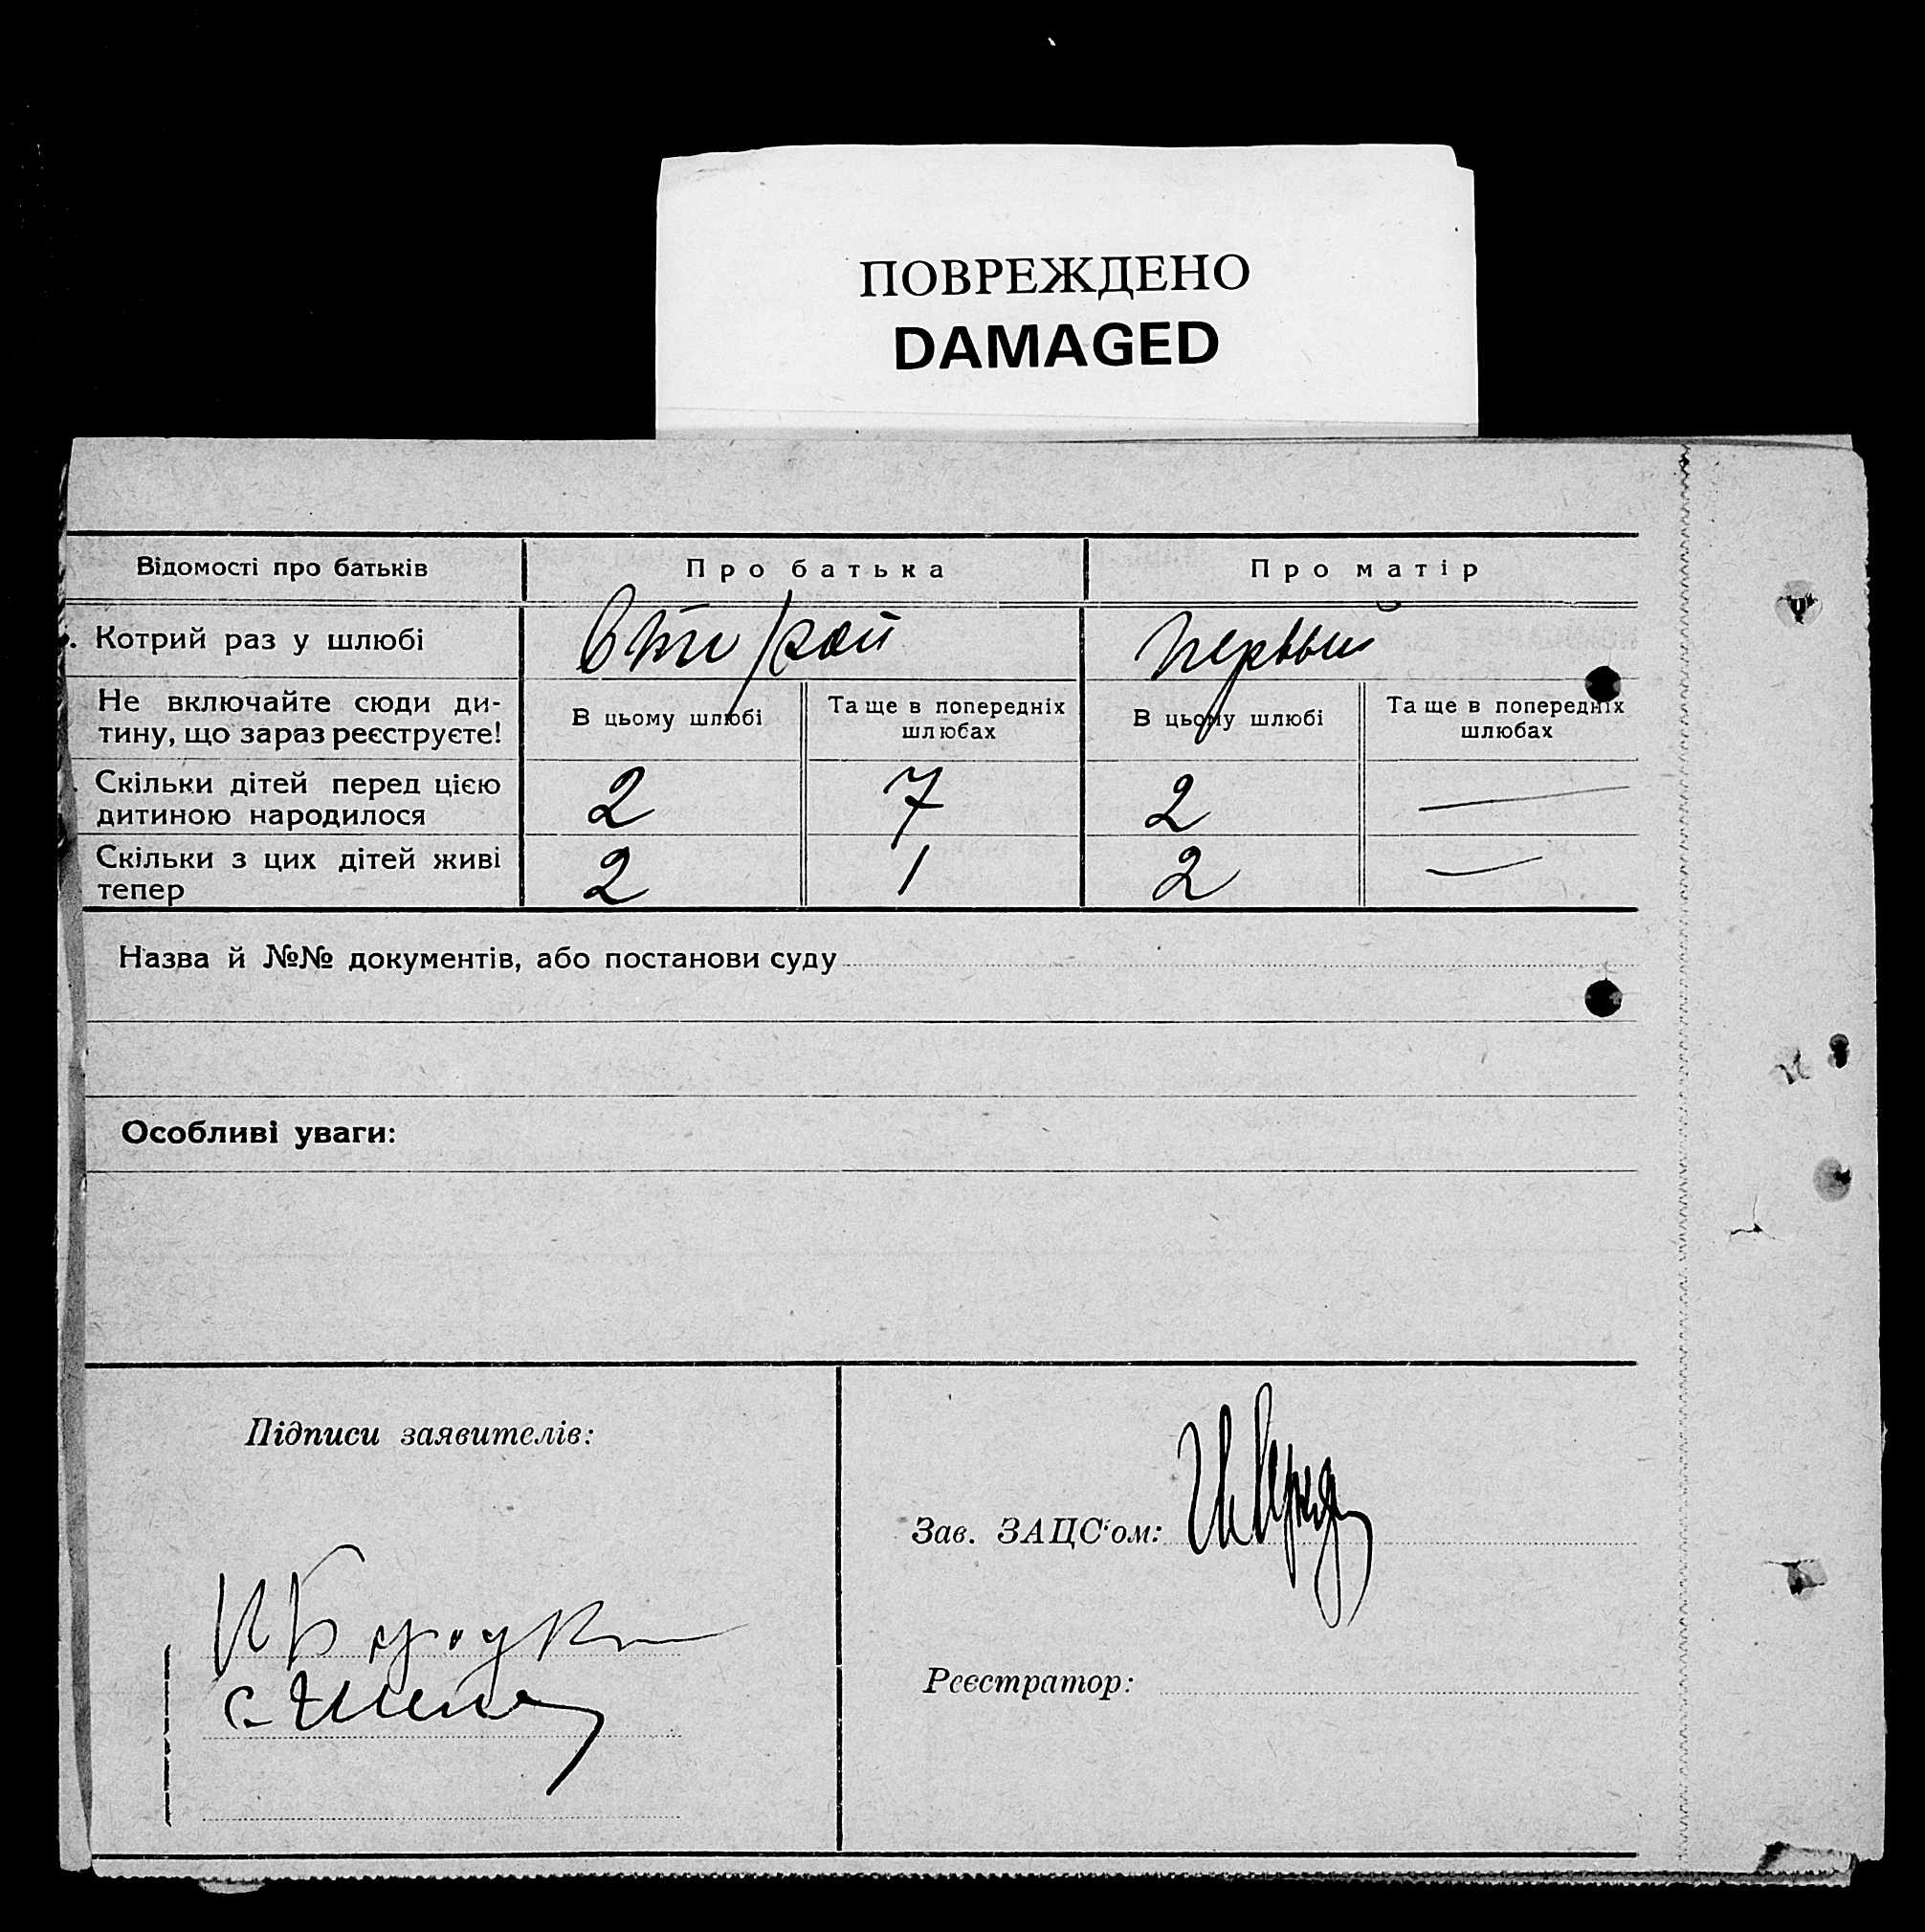 ПОВРЕЖДЕНО
DAMAGED
Відомості про батьків
Про батька
Про матір
Котрий раз у шлюбі
второй
первый
Не включайте сюди ди-
тину, що зараз реєструєте!
В цьому шлюбі
Та ще в попередніх
шлюбах
В цьому шлюбі
Та ще в попередніх
шлюбах
Скільки дітей перед цією
дитиною народилося
2
7
2
—
Скільки з цих дітей живі
тепер
2
1
2
—
Назва й №№ документів, або постанови суду
Особливі уваги:
Підписи заявителів:
Зав. ЗАЦС'ом:
Реєстратор: